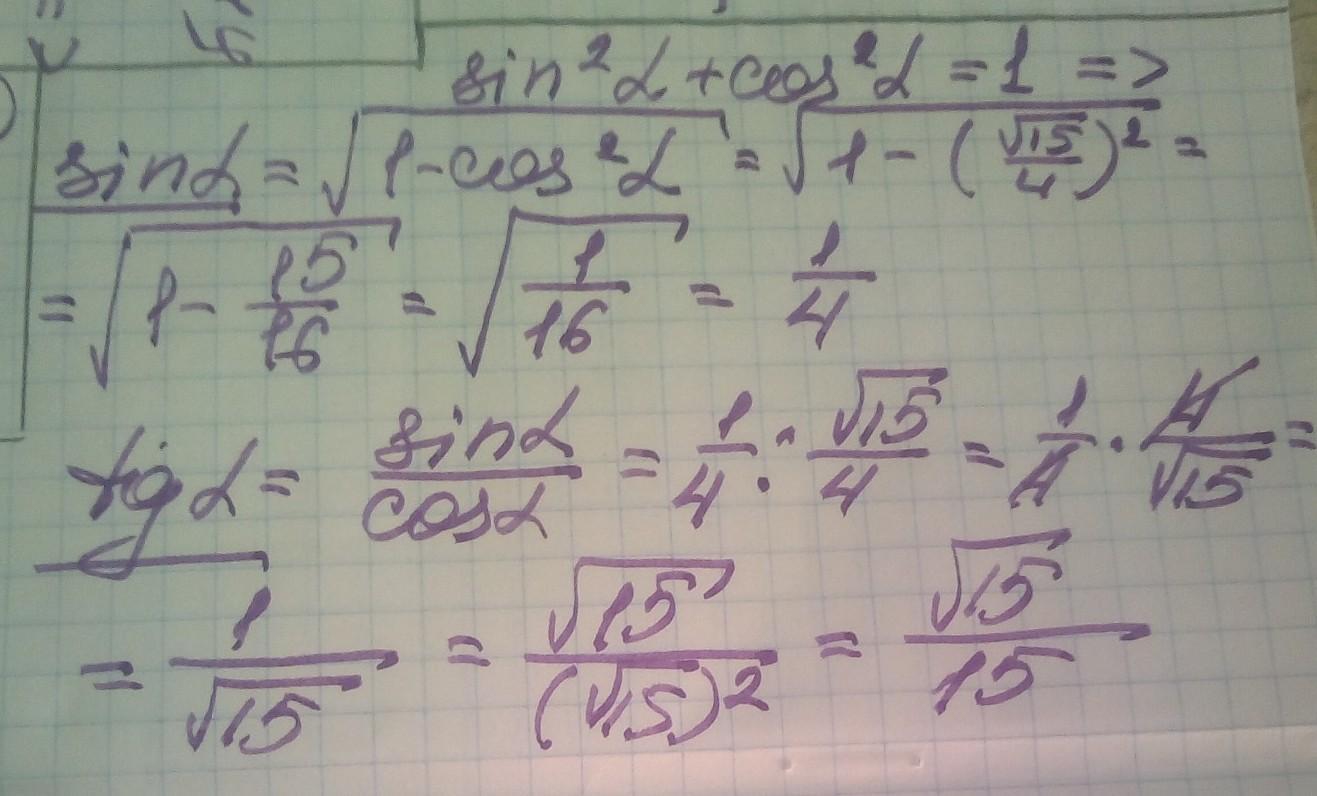 sin²α + cos²α = 1 =>
sinα = √(1 - cos²α) = √(1 - (√15/4)²) =
= √(1 - 15/16) = √(1/16) = 1/4
tgα = sinα/cosα = 1/4 : √15/4 = 1/4 · 4/√15 =
= 1/√15 = √15/(√15)² = √15/15